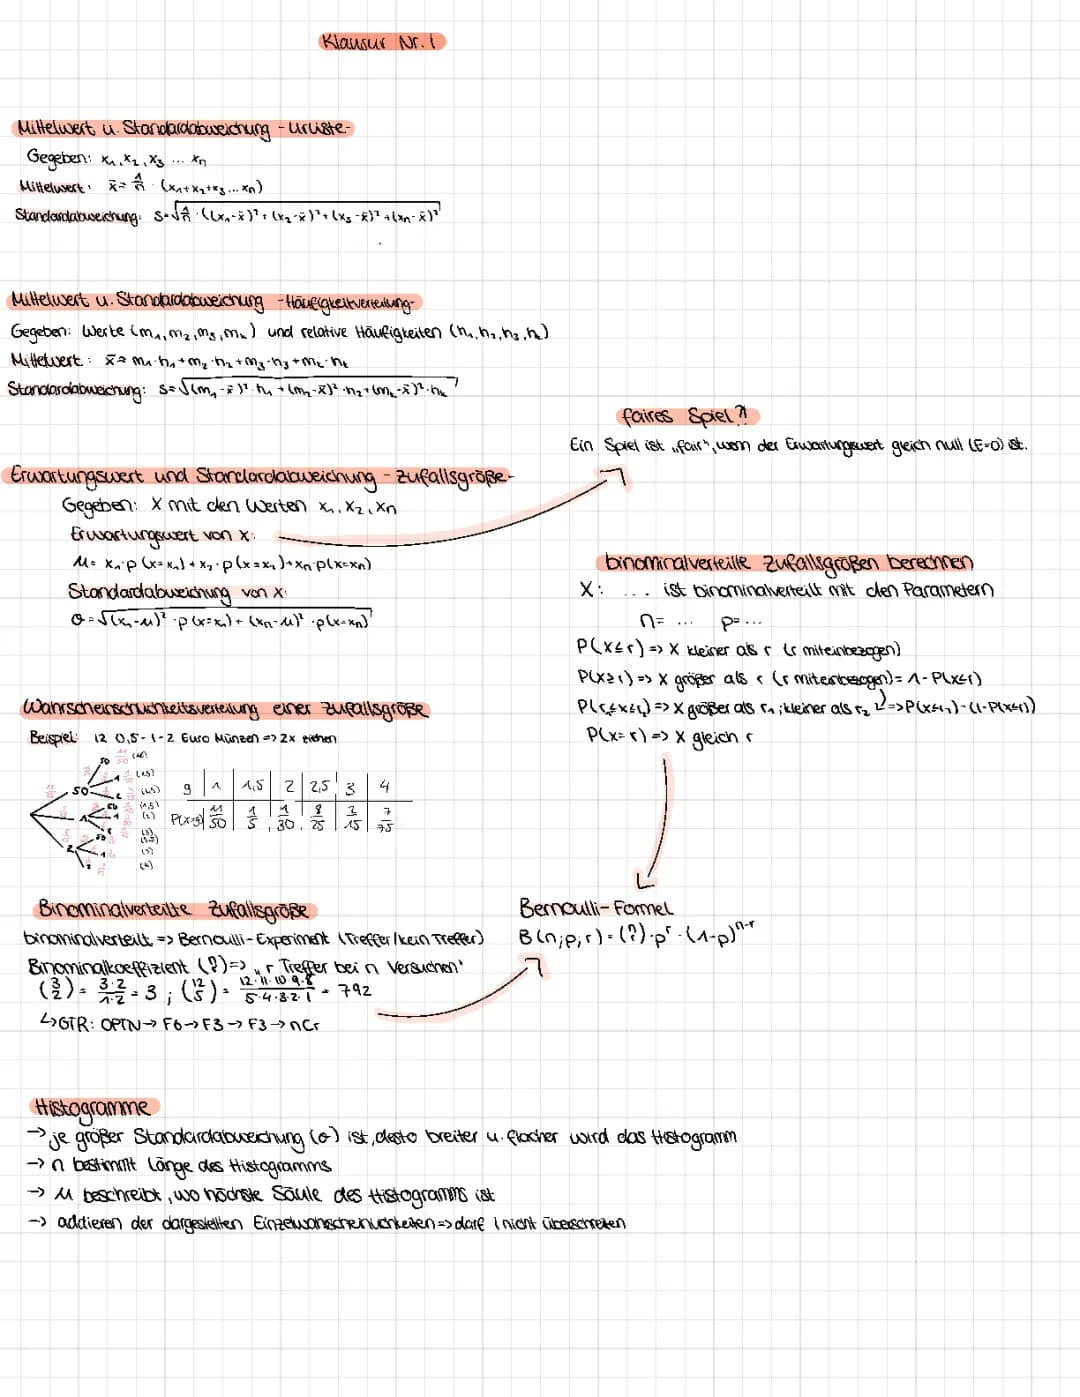 Klausur Nr. 1
Mittelwert u. Standardabweichung - Urliste-
Gegeben: x₁, x₂, x₃ ... xₙ
Mittelwert: x̄ = 1/n · (x₁+x₂+x₃...xₙ)
Standardabweichung: s=√1/n · ((x₁-x̄)² + (x₂-x̄)² + (x₃-x̄)² + (xₙ-x̄)²
Mittelwert u. Standardabweichung -Häufigkeitverteilung-
Gegeben: Werte (m₁, m₂, m₃, mₖ) und relative Häufigkeiten (h₁, h₂, h₃, hₖ)
Mittelwert: x̄= m₁·h₁+m₂·h₂+m₃·h₃+mₖ·hₖ
Standardabweichung: s=√(m₁-x̄)²·h₁+(m₂-x̄)²·h₂+(mₖ-x̄)²·hₖ
faires Spiel?!
Ein Spiel ist „fair", wenn der Erwartungswert gleich null (E=0) ist.
Erwartungswert und Standardabweichung - Zufallsgröße-
Gegeben: X mit den Werten x₁, x₂, xₙ
Erwartungswert von X:
μ= x₁·p(x=x₁)+x₂·p(x=x₂)+xₙ·p(x=xₙ)
Standardabweichung von X:
σ=√(x₁-μ)²·p(x=x₁)+(xₙ-μ)²·p(x=xₙ)
binominalverteilte Zufallsgrößen berechnen
X: ... ist binominalverteilt mit den Parametern
n= ... p=...
P(X≤r) => X kleiner als r (r miteinbezogen)
P(X≥r) => X größer als r (r miteinbezogen)= 1-P(X≤r)
P(r₁≤X≤r₂) => X größer als r₁; kleiner als r₂ => P(X≤r₂)-(1-P(X≤r₁))
P(X=r) => X gleich r
Wahrscheinschlichkeitsverteilung einer Zufallsgröße
Beispiel: 12 0,5-1-2 Euro Münzen => 2x ziehen
50
50
1
2
1
50
1
2
50
1
2
g | 1 | 1,5 | 2 | 2,5 | 3 | 4
P(X=g) | 11/50 | 1/5 | 1/30 | 8/25 | 2/15 | 7/75
Binominalverteilte Zufallsgröße
binominalverteilt => Bernoulli-Experiment (Treffer/kein Treffer)
Binominalkoeffizient (?)=> „r Treffer bei n Versuchen"
(3/2) = 3·2/1·2 = 3 ; (12/5) = 12·11·10·9·8/5·4·3·2·1 = 792
↳GTR: OPTN→ F6→F3→ F3→nCr
Bernoulli-Formel
B(n;p;r)=(?)·pʳ·(1-p)ⁿ⁻ʳ
Histogramme
→ je größer Standardabweichung (σ) ist, desto breiter u. flacher wird das Histogramm
→ n bestimmt Länge des Histogramms
→ μ beschreibt, wo höchste Säule des Histogramms ist
→ addieren der dargestellten Einzelwahrscheinlichkeiten => darf 1 nicht überschreiten